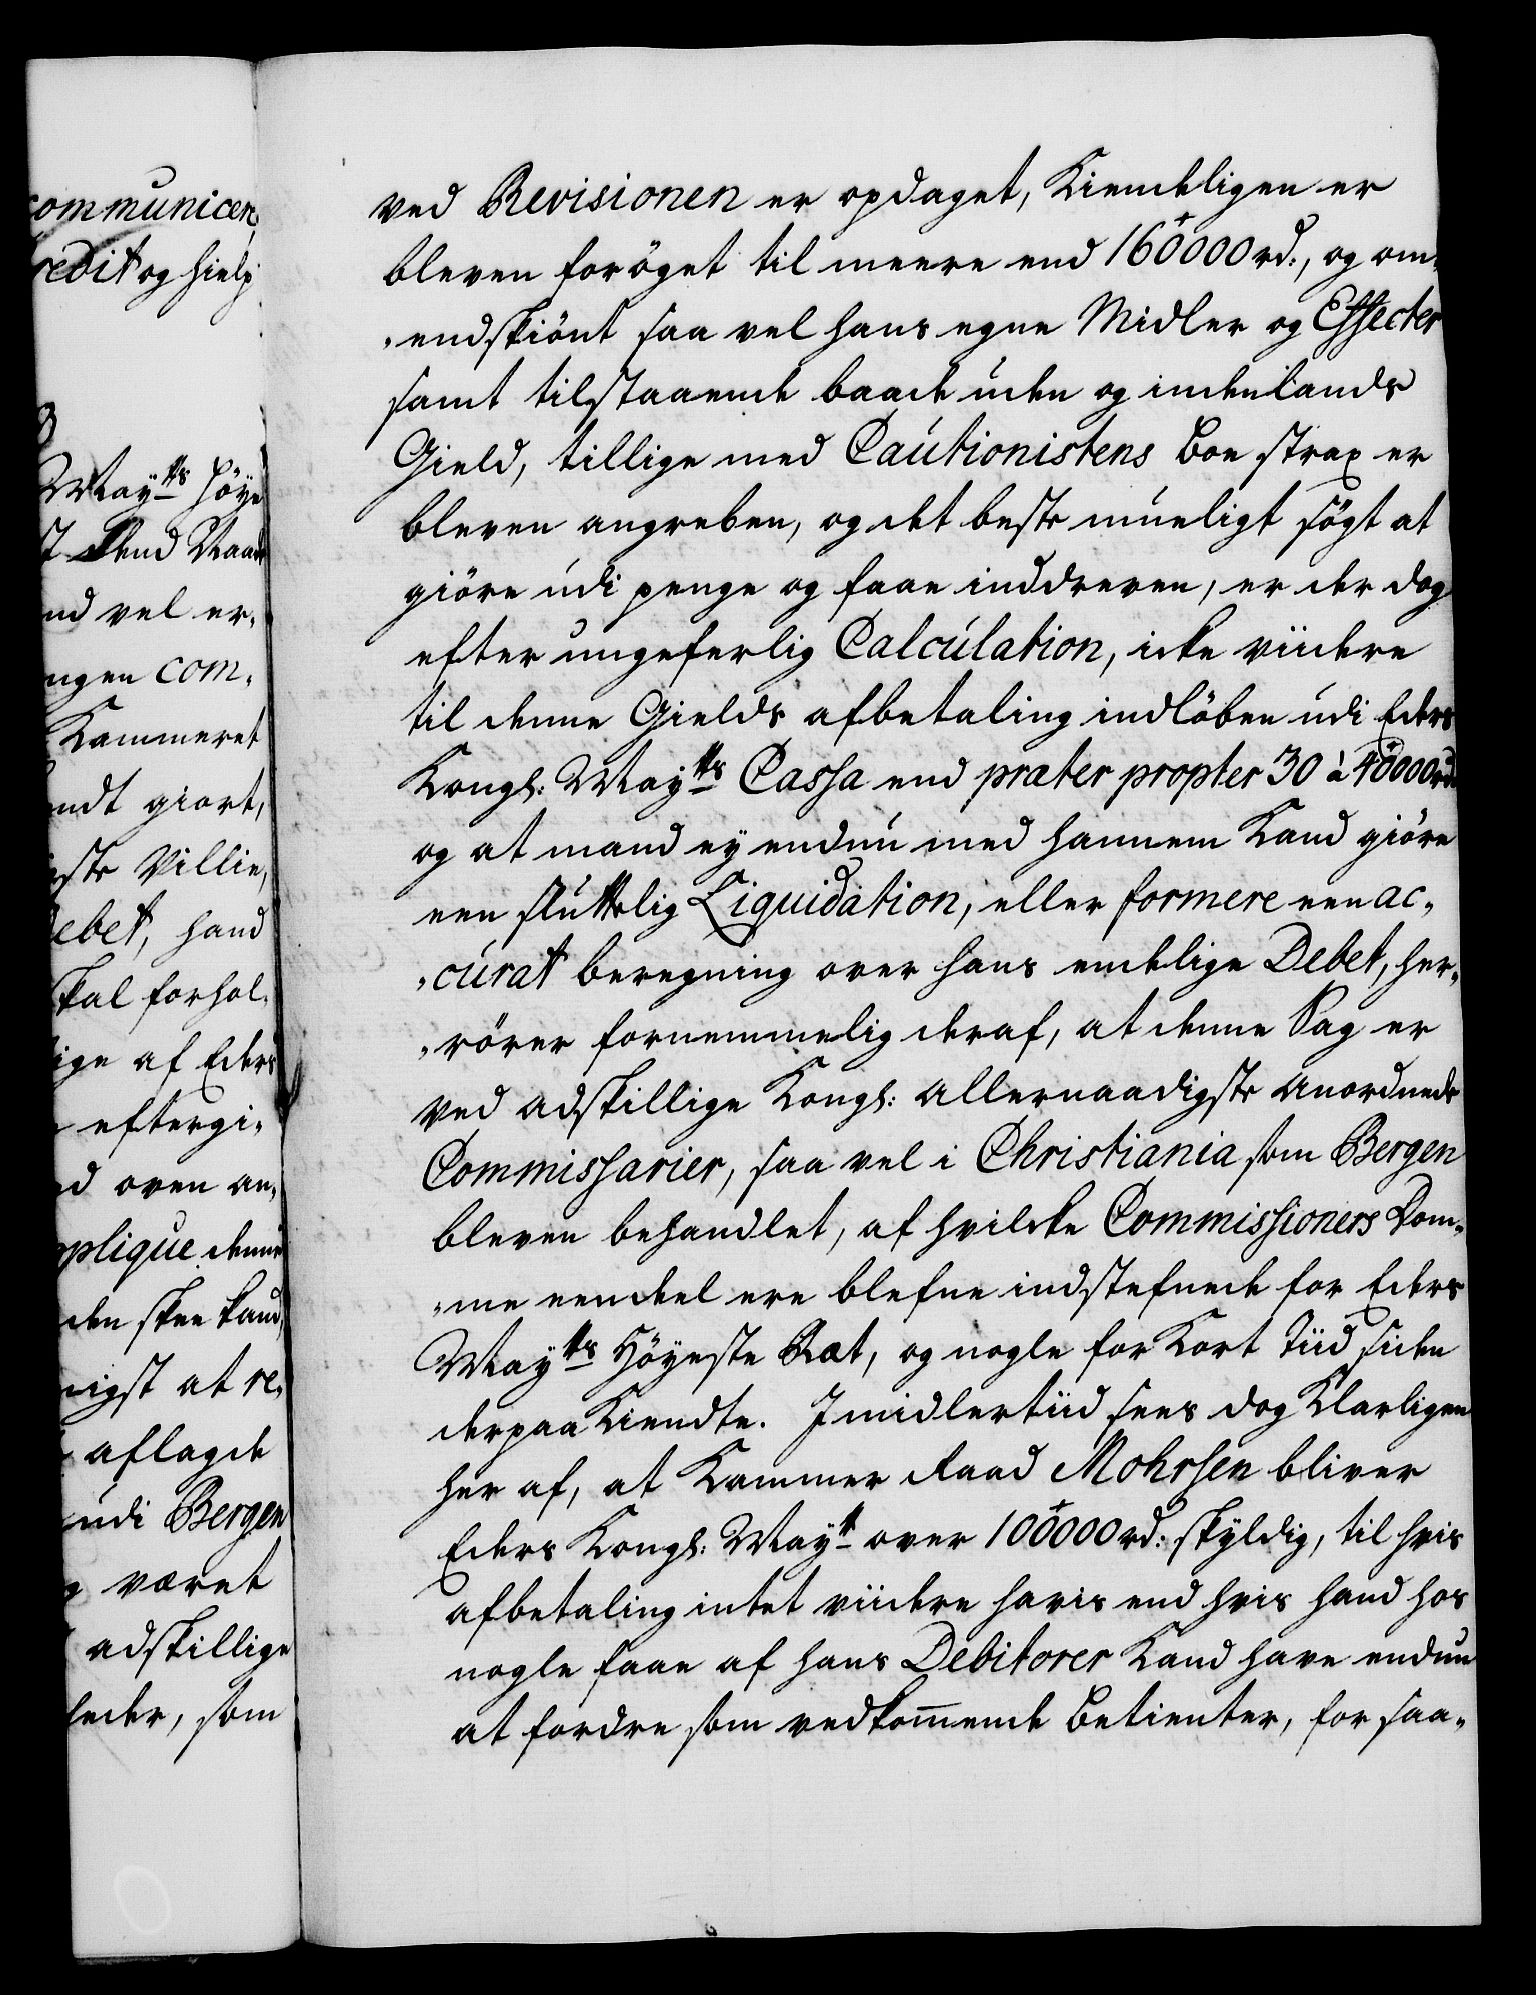 communicer,
redit og hielp
Mayts höye
nd vel er-
ngen com-
Kammeret
ndt giort,
Villie,
ebet, hand
skal forhol-
ige af Eders
eftergi-
d oven an-
plique denne
den skee kand,
nigst at re-
aflagde
udi Bergen
været
adskillige
leder, som
ved Revisionen er opdaget, Kiendeligen er
bleven forøget til meere end 160000 rd:, og om-
-endskiönt saa vel hans egne Midler og Effecter
samt tilstaaende baade uden og indenlands
Gield, tillige med Cautionistens boe strax er
bleven angreben, og det beste mueligt søgt at
giöre udi penge og faae inddreven, er der dog
efter ungeferlig Calculation, icke viidere
til denne Gields afbetaling indløben udi Eders
Kongl: Mayts Cassa end præter propter 30 à 40000 rd
og at mand ey endnu med hannem Kand giöre
een sluttelig Liquidation, eller formere een ac-
-curat beregning over hans endelige Debet, her-
-rörer fornemmelig deraf, at denne Sag er
ved adskillige Kongl: allernaadigste anordnede
Commissarier, saa vel i Christiania som Bergen
bleven behandlet, af hvilcke Commissioners Dom-
-me eendeel ere blefne indstefnede for Eders
Mayts Höyeste Ræt, og nogle for Kort Tiid siden
derpaa Kiendte. Imidlertiid sees dog Klarligen
her af, at Kammer Raad Mohrsen bliver
Eders Kongl: Mayt over 100000 rd: skyldig, til hvis
afbetaling intet viidere havis end hvis hand hos
nogle faae af hans Debitorer Kand have endnu
at fordre som vedkom̅ende betienter, for saa-